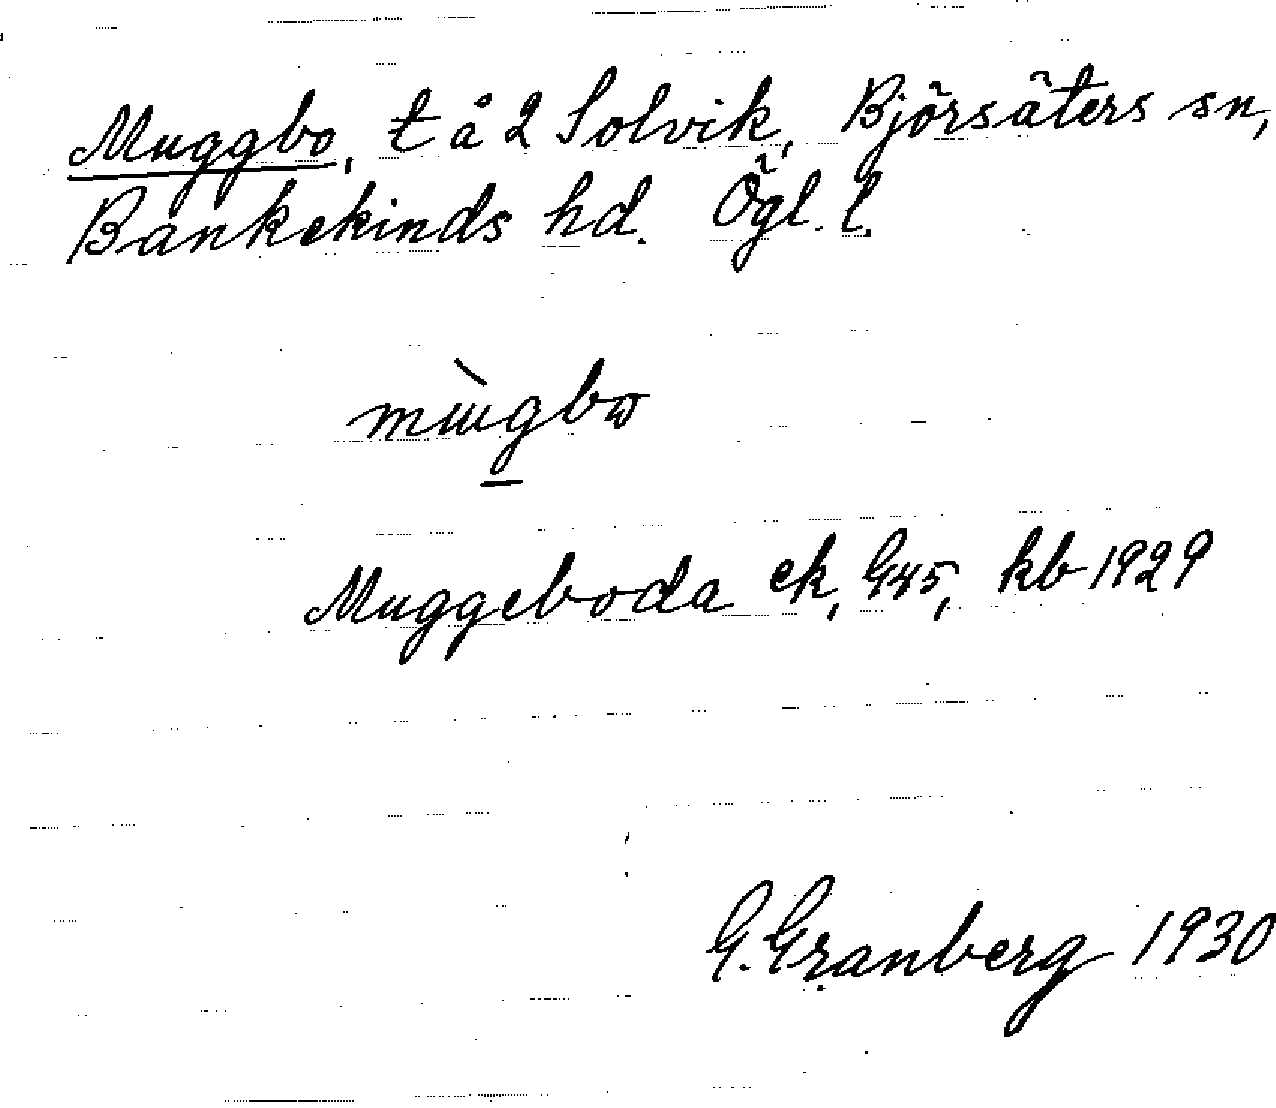 Muggbo, t å 2 Solvik, Björsäters sn,
Bankekinds hd. Ögl. l.
Muggeboda ek, G45, kb 1929
G. Granberg 1930